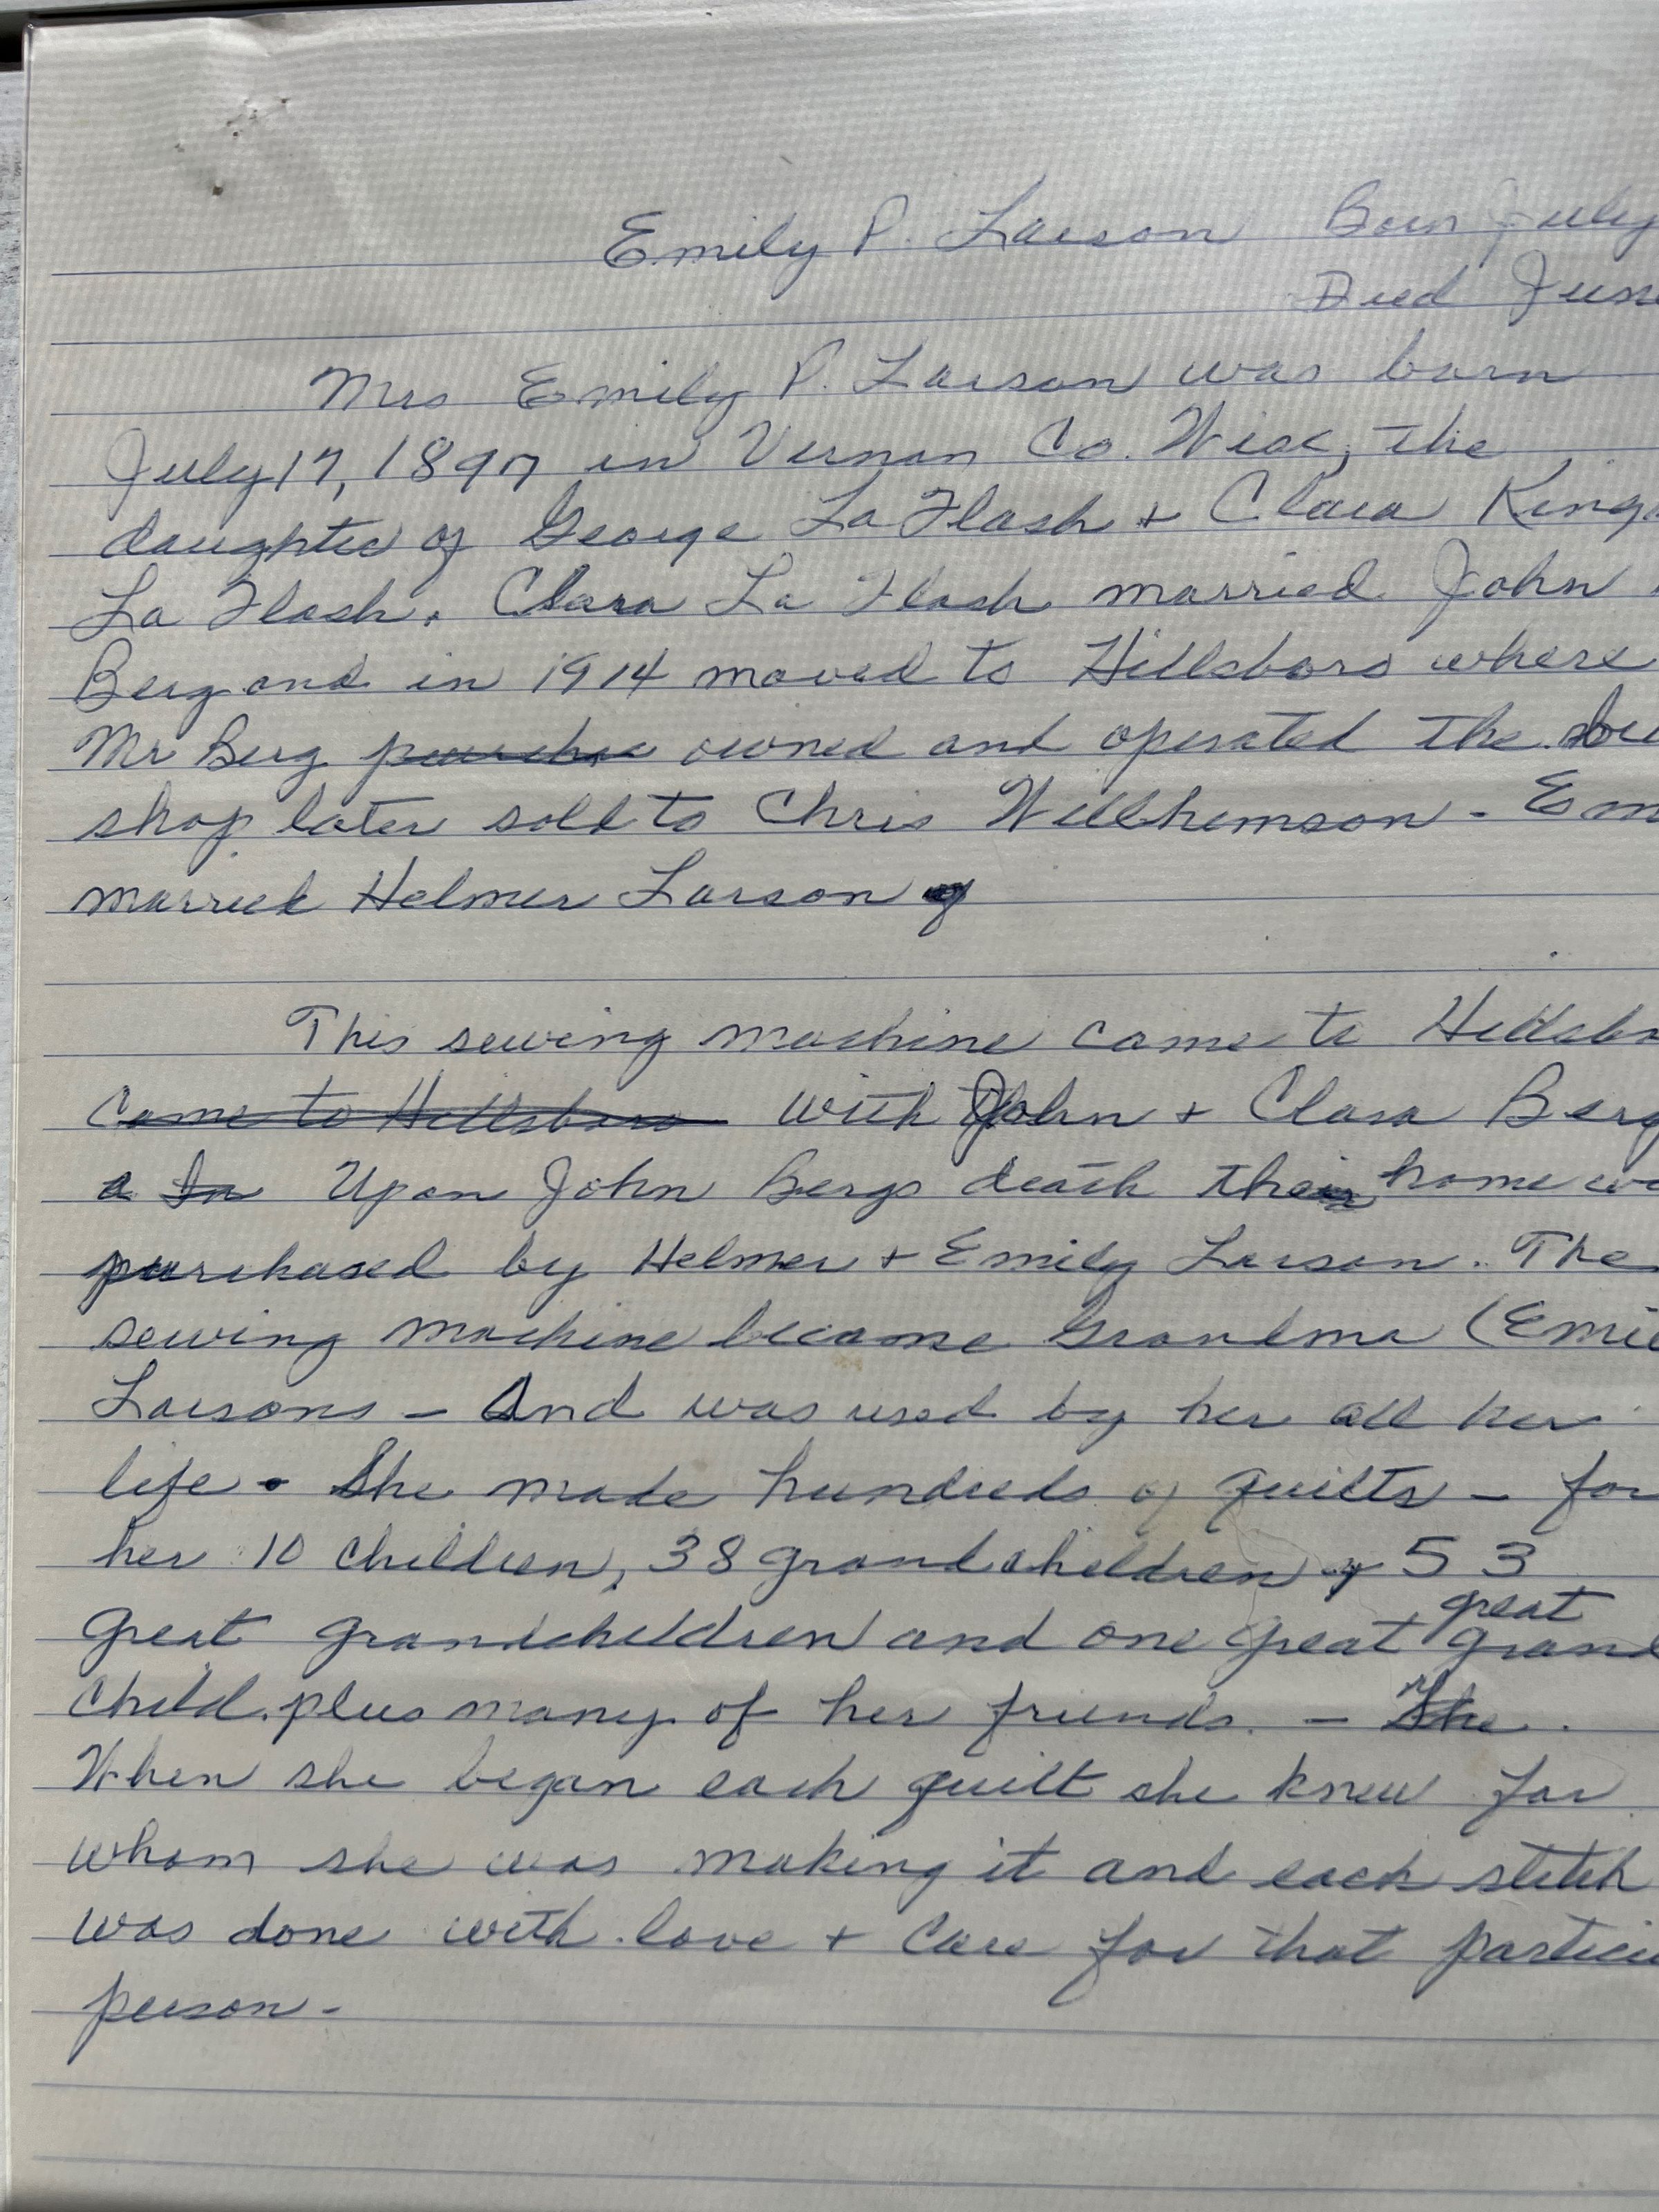 Emily P. Larson Born July
Died June
Mrs Emily P. Larson was born
July 17, 1897 in Vernon Co. Wisc, the
daughter of George La Flash + Clara King
La Flash. Clara La Flash married John
Berg and in 1914 moved to Hillsboro where
Mr Berg purchas owned and operated the
shop later sold to Chris Willhemson - Em
married Helmer Larson
This sewing machine came to Hillsbo
came to Hillsboro with John + Clara Berg
a In Upon John Bergs death their home w
purchased by Helmer + Emily Larson. The
sewing machine became Grandma (Emi
Larsons - And was used by her all her
life. She made hundreds of quilts - for
her 10 children, 38 grandchildren, 53
great
great grandchildren and one great grand
child. plus many of her friends. - She.
When she began each quilt she knew for
whom she was making it and each stitch
was done with love + care for that particu
person -